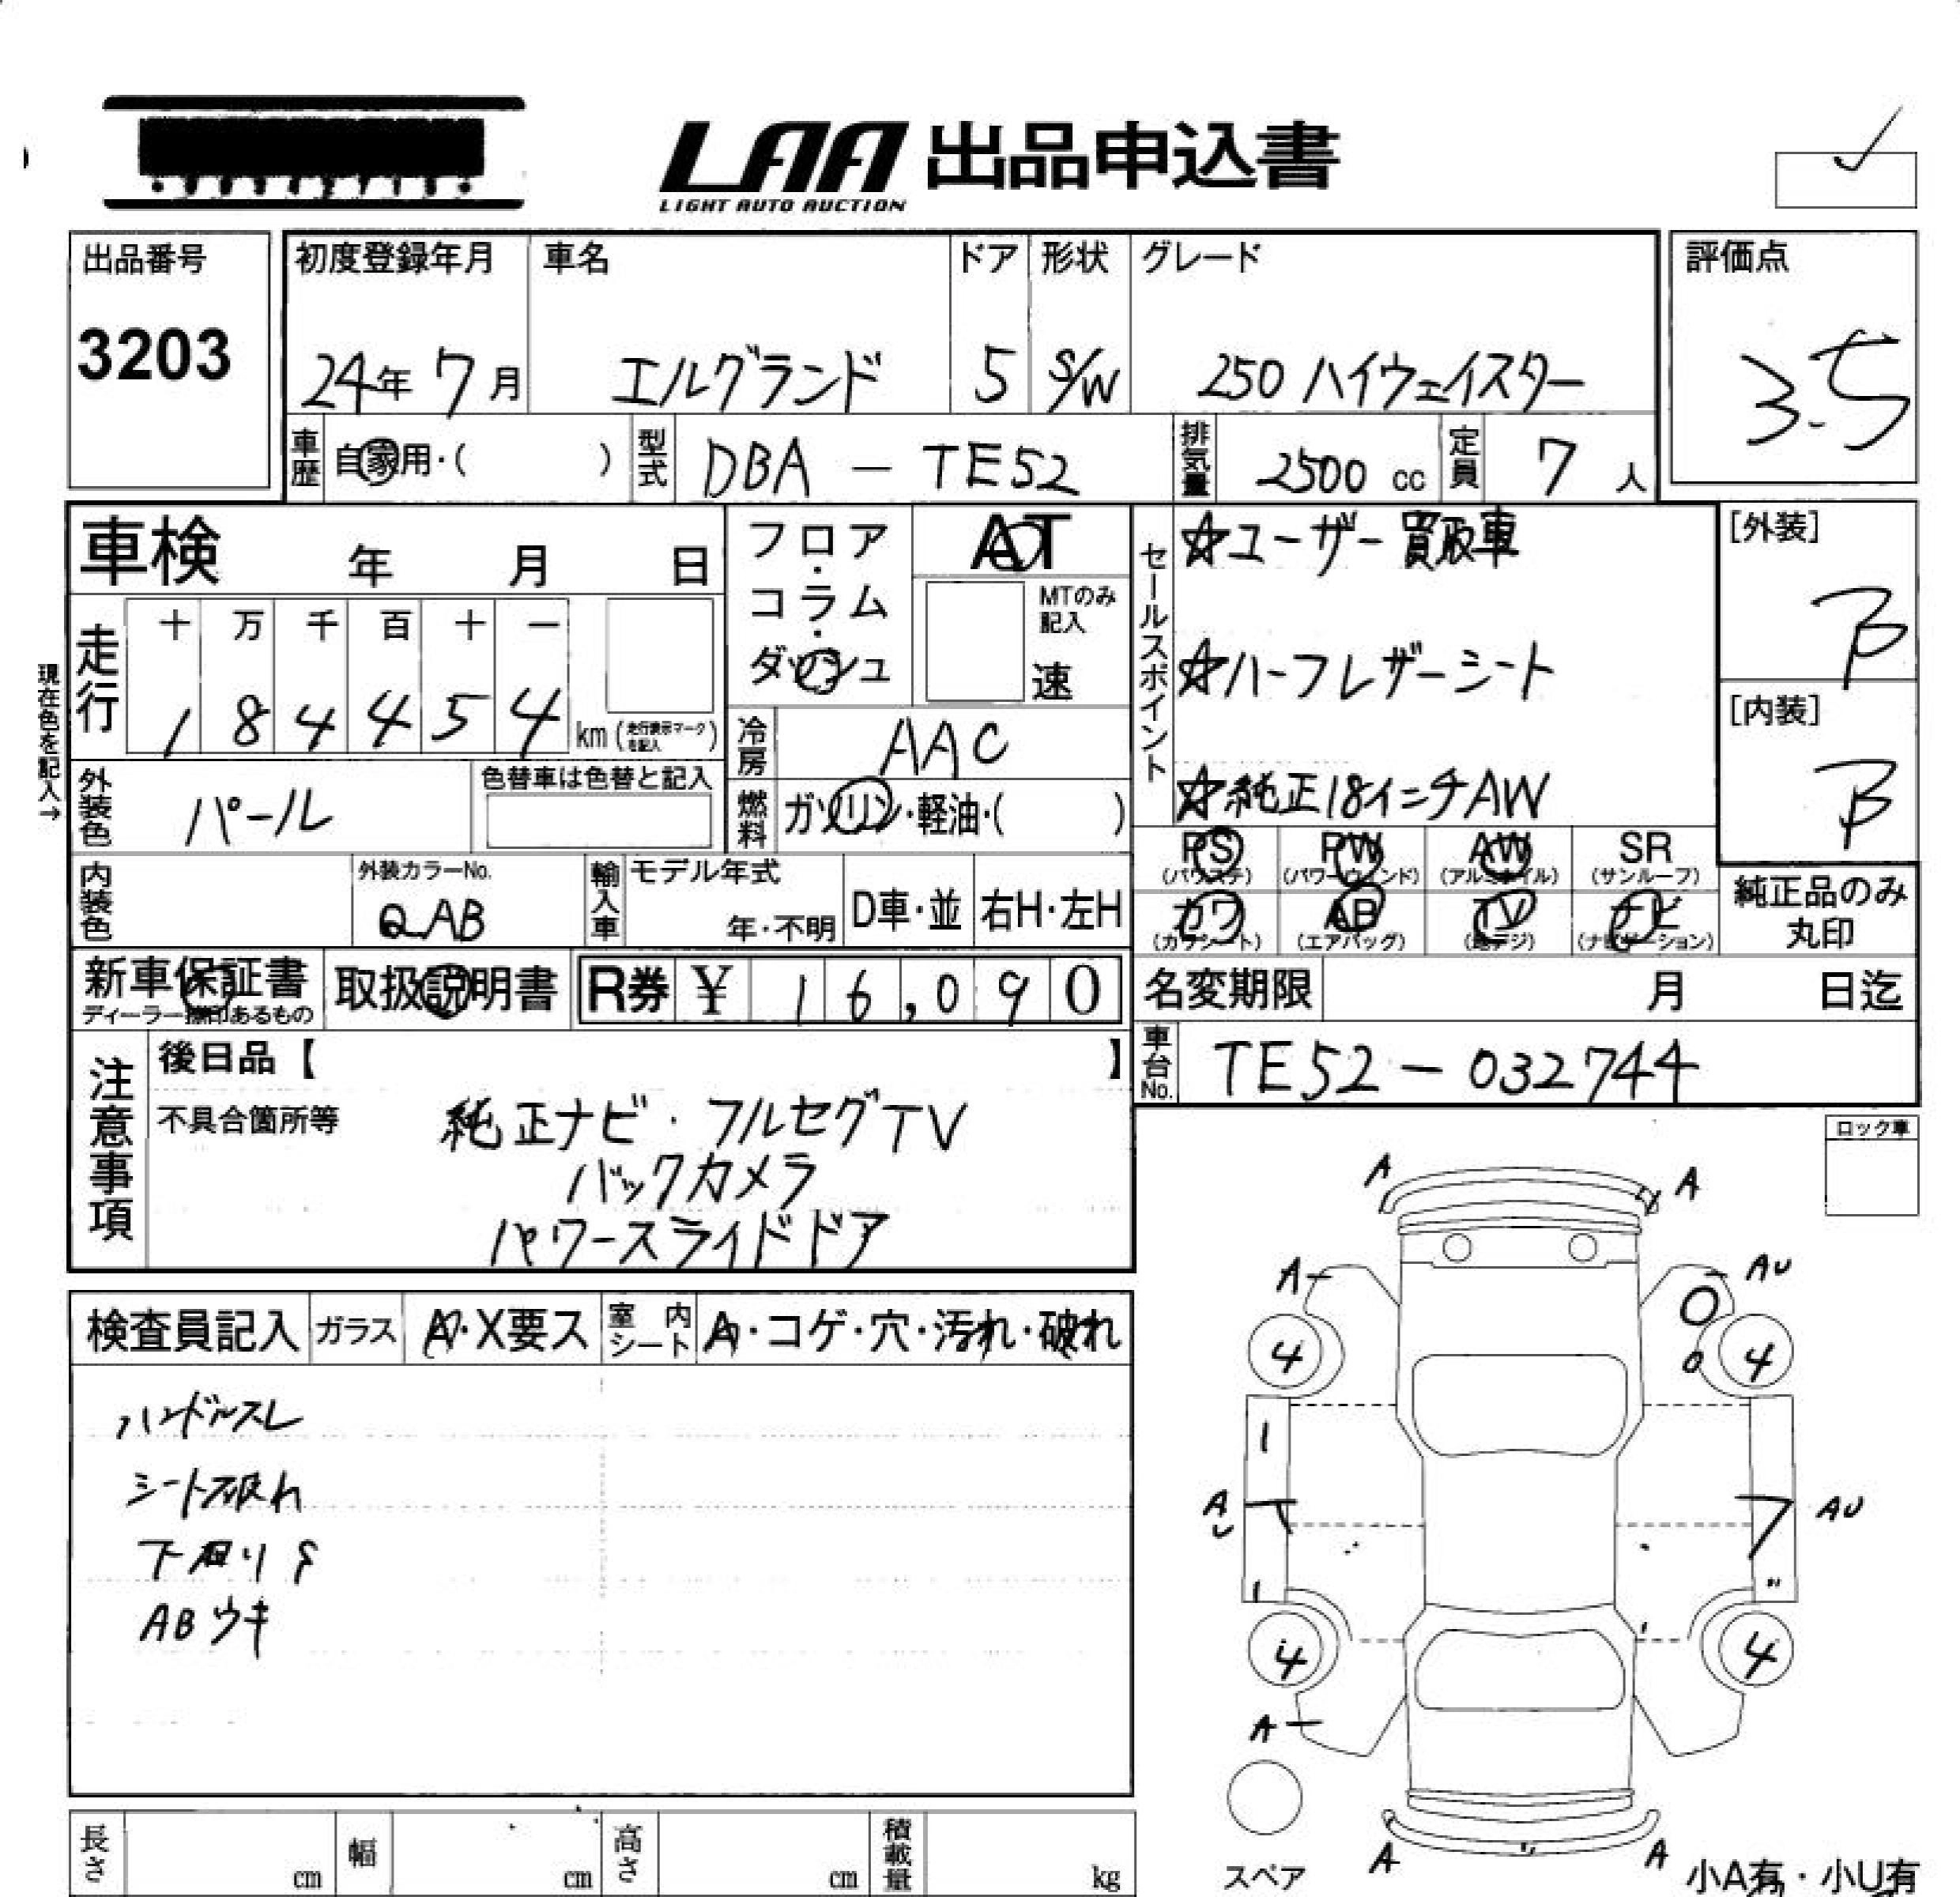 LAA 出品申込書
LIGHT AUTO AUCTION
出品番号 初度登録年月 車名 ドア 形状 グレード 評価点
3203 24年 7月 エルグランド 5 S/W 250 ハイウェイスター 3.5
車歴 自家用・( ) 型式 DBA - TE52 排気量 2500 cc 定員 7 人
車検 年 月 日
フロア・コラム・ダッシュ
AT
MTのみ記入
速
セールスポイント
☆ユーザー買取車
☆ハーフレザーシート
☆純正18インチAW
[外装]
B
[内装]
B
現在色を記入→
走行 十 万 千 百 十 一
1 8 4 4 5 4 km (走行表示マークを記入)
冷房 AAC
外装色 パール 色替車は色替と記入
燃料 ガソリン・軽油・( )
PS PW AW SR
(パワステ) (パワーウィンド) (アルミホイル) (サンルーフ)
カワ AB TV ナビ
(カワシート) (エアバッグ) (地デジ) (ナビゲーション)
純正品のみ
丸印
内装色 外装カラーNo. QAB 輸入車 モデル年式 年・不明 D車・並 右H・左H
新車保証書 取扱説明書 R券 ¥ 16,090
ディーラー捺印あるもの
名変期限 月 日迄
車台No. TE52-032744
注意事項
後日品【 】
不具合箇所等 純正ナビ・フルセグTV
バックカメラ
パワースライドドア
ロック車
検査員記入 ガラス A・X要ス 室内シート A・コゲ・穴・汚れ・破れ
ハンドルスレ
シート破れ
下廻りS
ABウキ
A A
A AU
4 4
AU AU
4 4
A
A A
スペア
小A有・小U有
長さ cm 幅 cm 高さ cm 積載量 kg